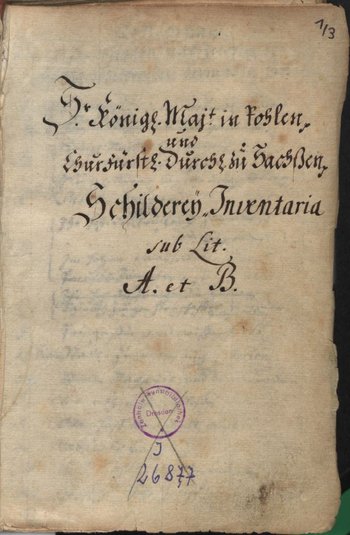 1/3
Sr. Königl. Majt. in Pohlen,
und
Churfürstl. Durchl. zu Sachßen,
Schilderey-Inventaria
sub Lit.
A. et B.
Dresden
J
26877